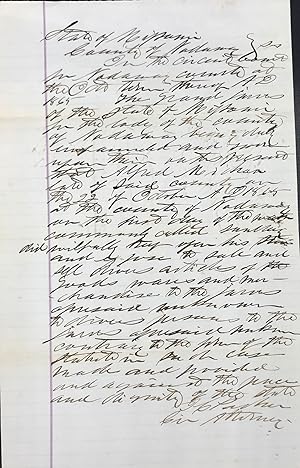 State of Missouri
County of Nodaway } ss
In the circuit court
for Nodaway county at
the Oct Term thereof A.D.
1865 The Grand jurors
of the State of Missouri
for the body of the county
of Nodaway being duly
impanneled and sworn
upon their oath present
that Alfred
late of said county on
the 22 of October A D 1865
at the county of Nodaway
on the first day of the week
commonly called Sunday
did wilfully keep open his
and expose to sale and
sell divers articles of
goods wares and mer-
chandise to the jurors
aforesaid unknown
to divers persons to the
jurors aforesaid unknown
contrary to the form of the
statute in such case
made and provided
and against the peace
and dignity of the State

Cir Attorney